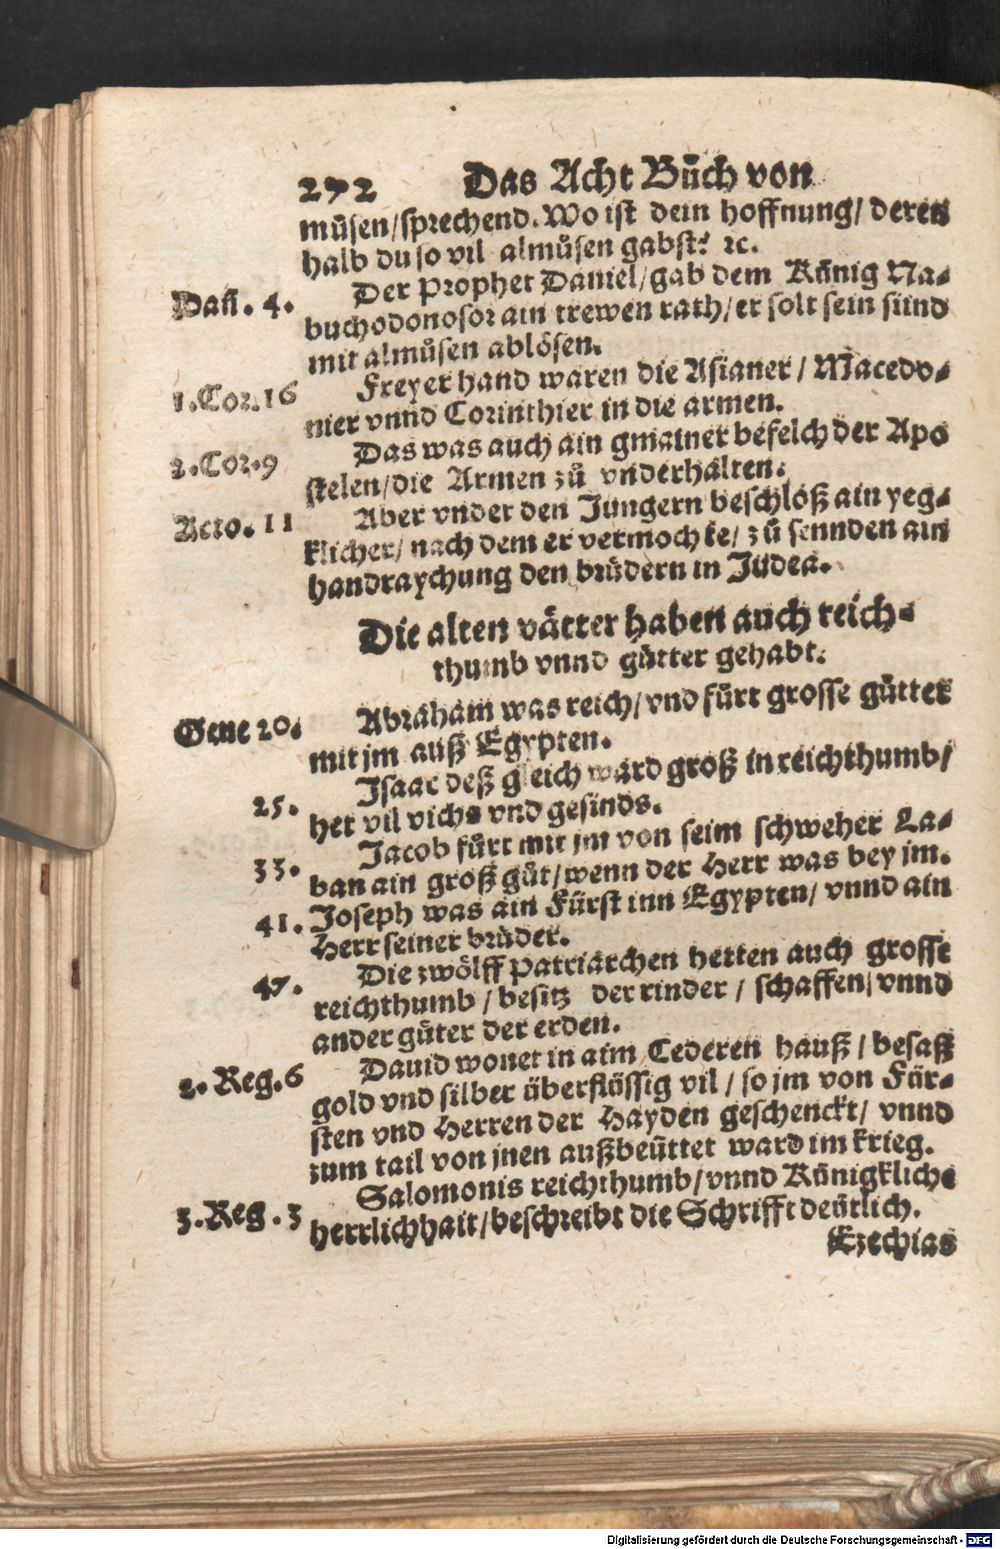 272 Das Acht Bůch von
můsen/sprechend. Wo ist dein hoffnung/ deren
halb du so vil almůsen gabst? ꝛc.
Dañ. 4. Der Prophet Daniel/gab dem Künig Na-
buchodonosor ain trewen rath/er solt sein sünd
mit almůsen ablösen.
1.Cor.16 Freyer hand waren die Asianer / Macedo-
nier vnnd Corinthier in die armen.
2.Cor.9 Das was auch ain gmainer befelch der Apo
stelen/die Armen zů vnderhalten.
Acto. 11 Aber vnder den Jungern beschloß ain yeg-
klicher/ nach dem er vermochte/ zů sennden ain
handraychung den brüdern in Judea.
Die alten vätter haben auch reich-
thumb vnnd gütter gehabt.
Gene 20. Abraham was reich/vnd fürt grosse gütter
mit jm auß Egypten.
Isaac deß gleich ward groß in reichthumb/
25. het vil vichs vnd gesinds.
Jacob fürt mit jm von seim schweher La-
33. ban ain groß gůt/wenn der Herr was bey jm.
41. Joseph was ain Fürst inn Egypten/ vnnd ain
Herr seiner brüder.
47. Die zwölff Patriarchen hetten auch grosse
reichthumb / besitz der rinder / schaffen/ vnnd
ander güter der erden.
2. Reg.6 Dauid wonet in aim Cederen hauß / besaß
gold vnd silber überflüssig vil / so jm von Für-
sten vnd Herren der Hayden geschenckt/ vnnd
zum tail von jnen außbeüttet ward im krieg.
Salomonis reichthumb/vnnd Künigkliche
3.Reg.3 herrlichhait/beschreibt die Schrifft deütlich.
Ezechias
Digitalisierung gefördert durch die Deutsche Forschungsgemeinschaft - DFG